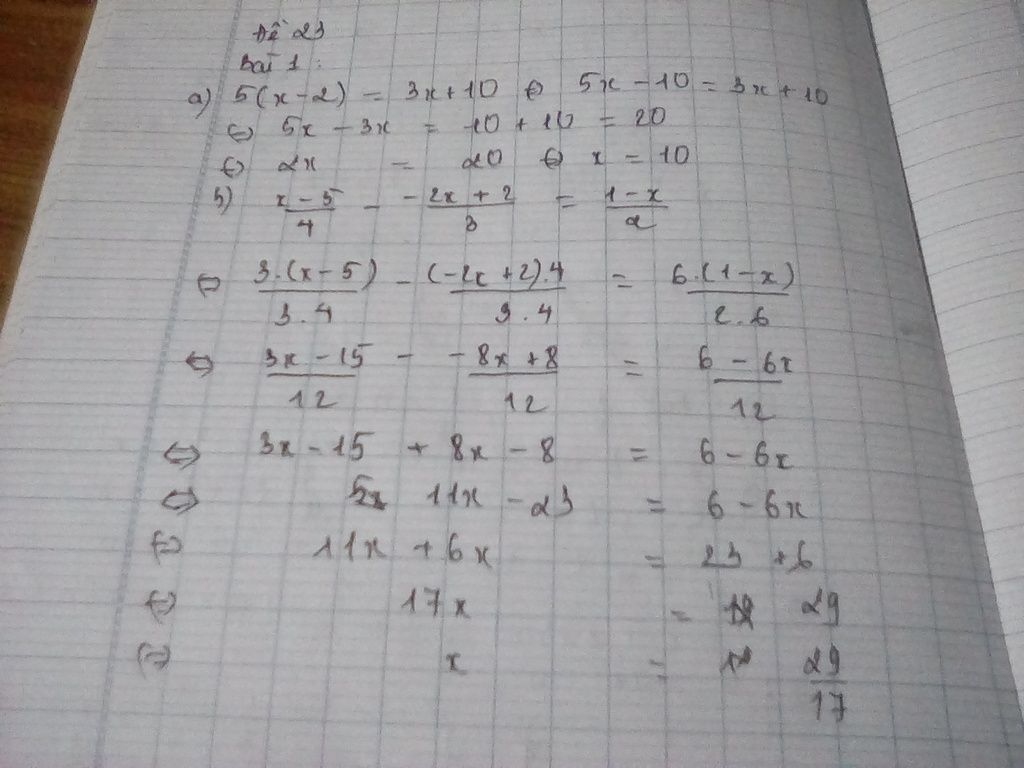 Đề 23
Bài 1 :
a) 5(x-2) = 3x+10 ⇔ 5x - 10 = 3x + 10
⇔ 5x - 3x = 10 + 10 = 20
⇔ 2x = 20 ⇔ x = 10
b) \frac{x-5}{4} - \frac{-2x+2}{3} = \frac{1-x}{2}
⇔ \frac{3.(x-5)}{3.4} - \frac{(-2x+2).4}{3.4} = \frac{6.(1-x)}{2.6}
⇔ \frac{3x-15}{12} - \frac{-8x+8}{12} = \frac{6-6x}{12}
⇔ 3x - 15 + 8x - 8 = 6 - 6x
⇔ 11x - 23 = 6 - 6x
⇔ 11x + 6x = 23 + 6
⇔ 17x = 29
⇔ x = \frac{29}{17}